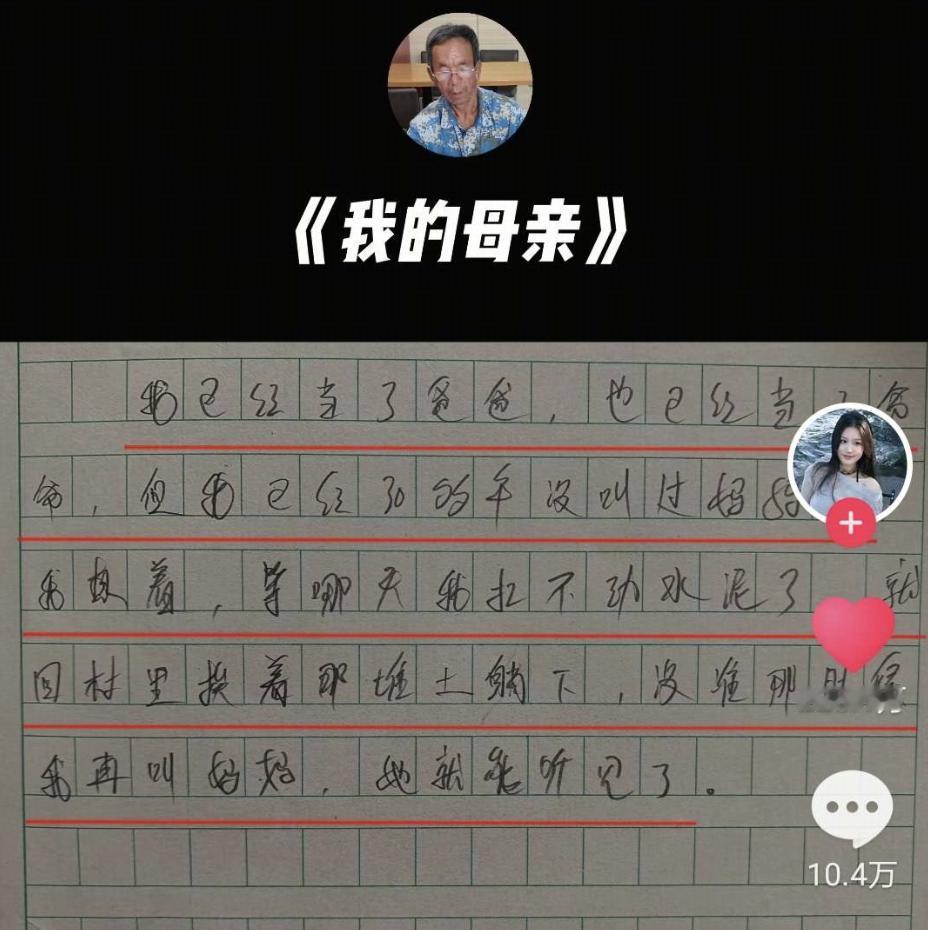 《我的母亲》
我已经当了爸爸，也已经当了爷
爷，但我已经30多年没叫过妈妈
我想着，等哪天我扛不动水泥了 就
回村里挨着那堆土躺下，没准那时候
我再叫妈妈，她就能听见了。
10.4万